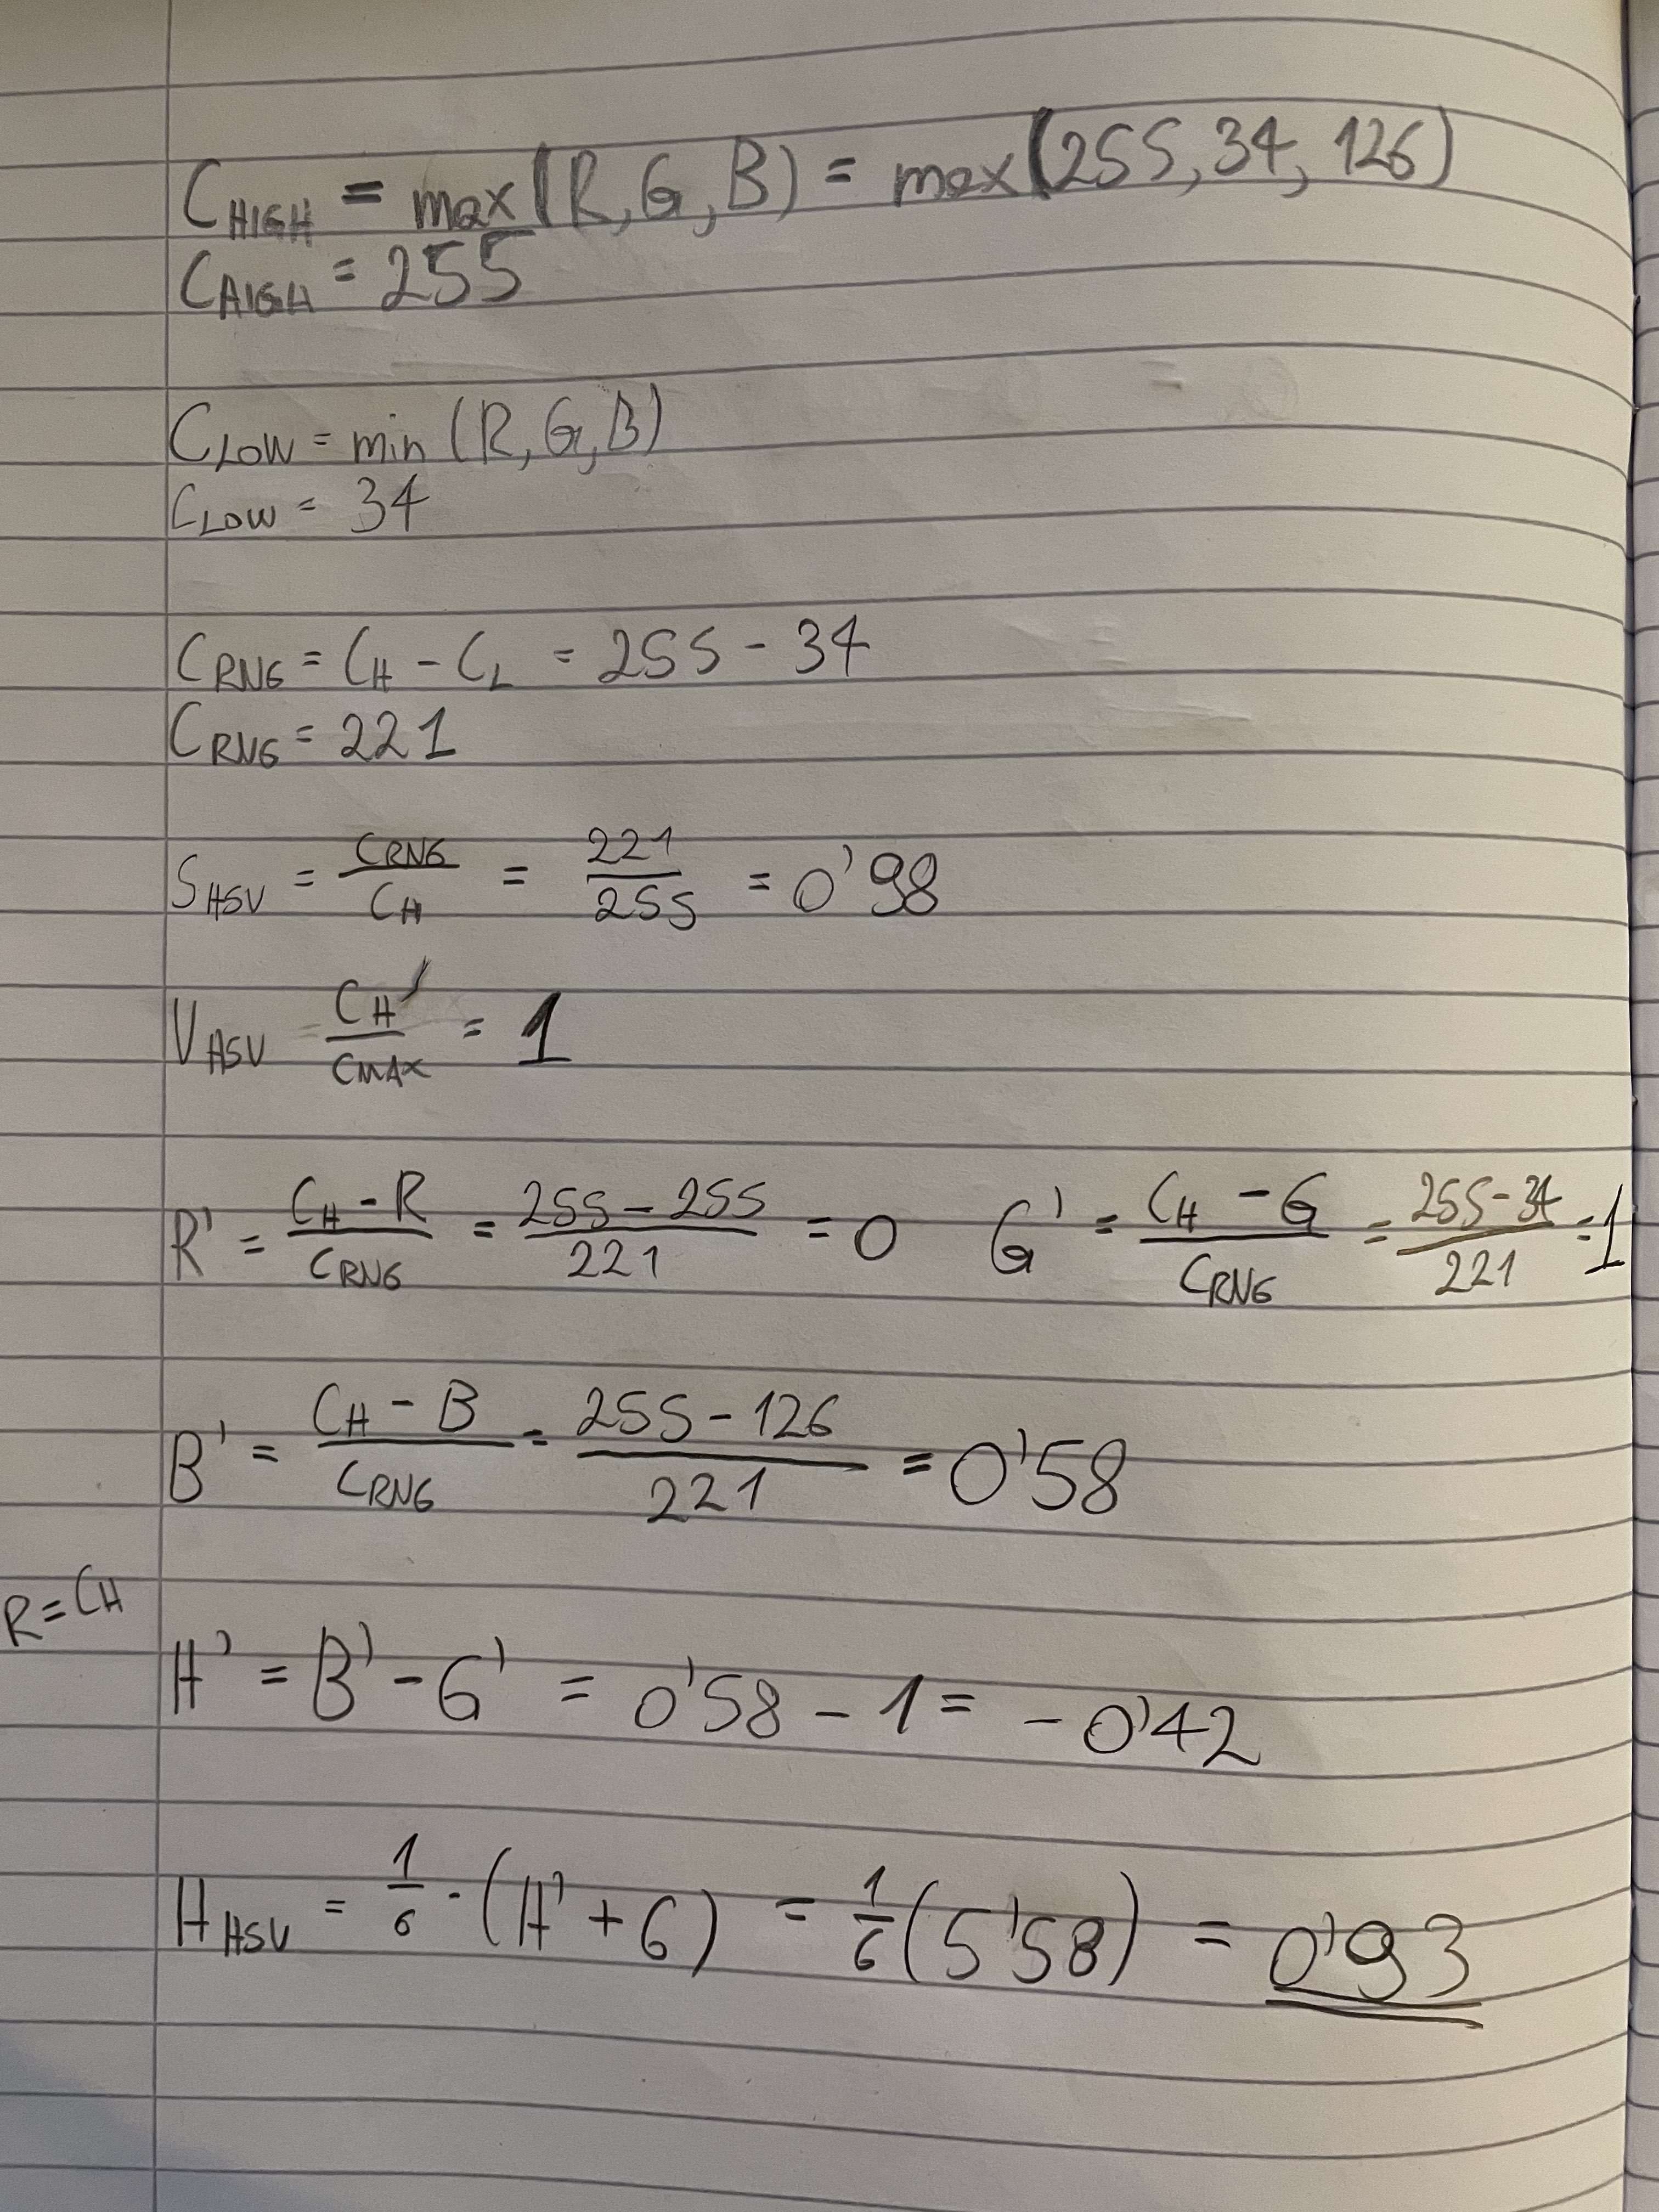 C_HIGH = max(R,G,B) = max(255,34,126)
C_HIGH = 255
C_LOW = min (R,G,B)
C_LOW = 34
C_RNG = C_H - C_L = 255 - 34
C_RNG = 221
S_HSV = C_RNG / C_H = 221 / 255 = 0'98
V_HSV = C_H / C_MAX = 1
R' = C_H - R / C_RNG = 255 - 255 / 221 = 0 G' = C_H - G / C_RNG = 255 - 34 / 221 = 1
B' = C_H - B / C_RNG = 255 - 126 / 221 = 0'58
R = C_H
H' = B' - G' = 0'58 - 1 = - 0'42
H_HSV = 1/6 · (H' + 6) = 1/6 (5'58) = 0'93